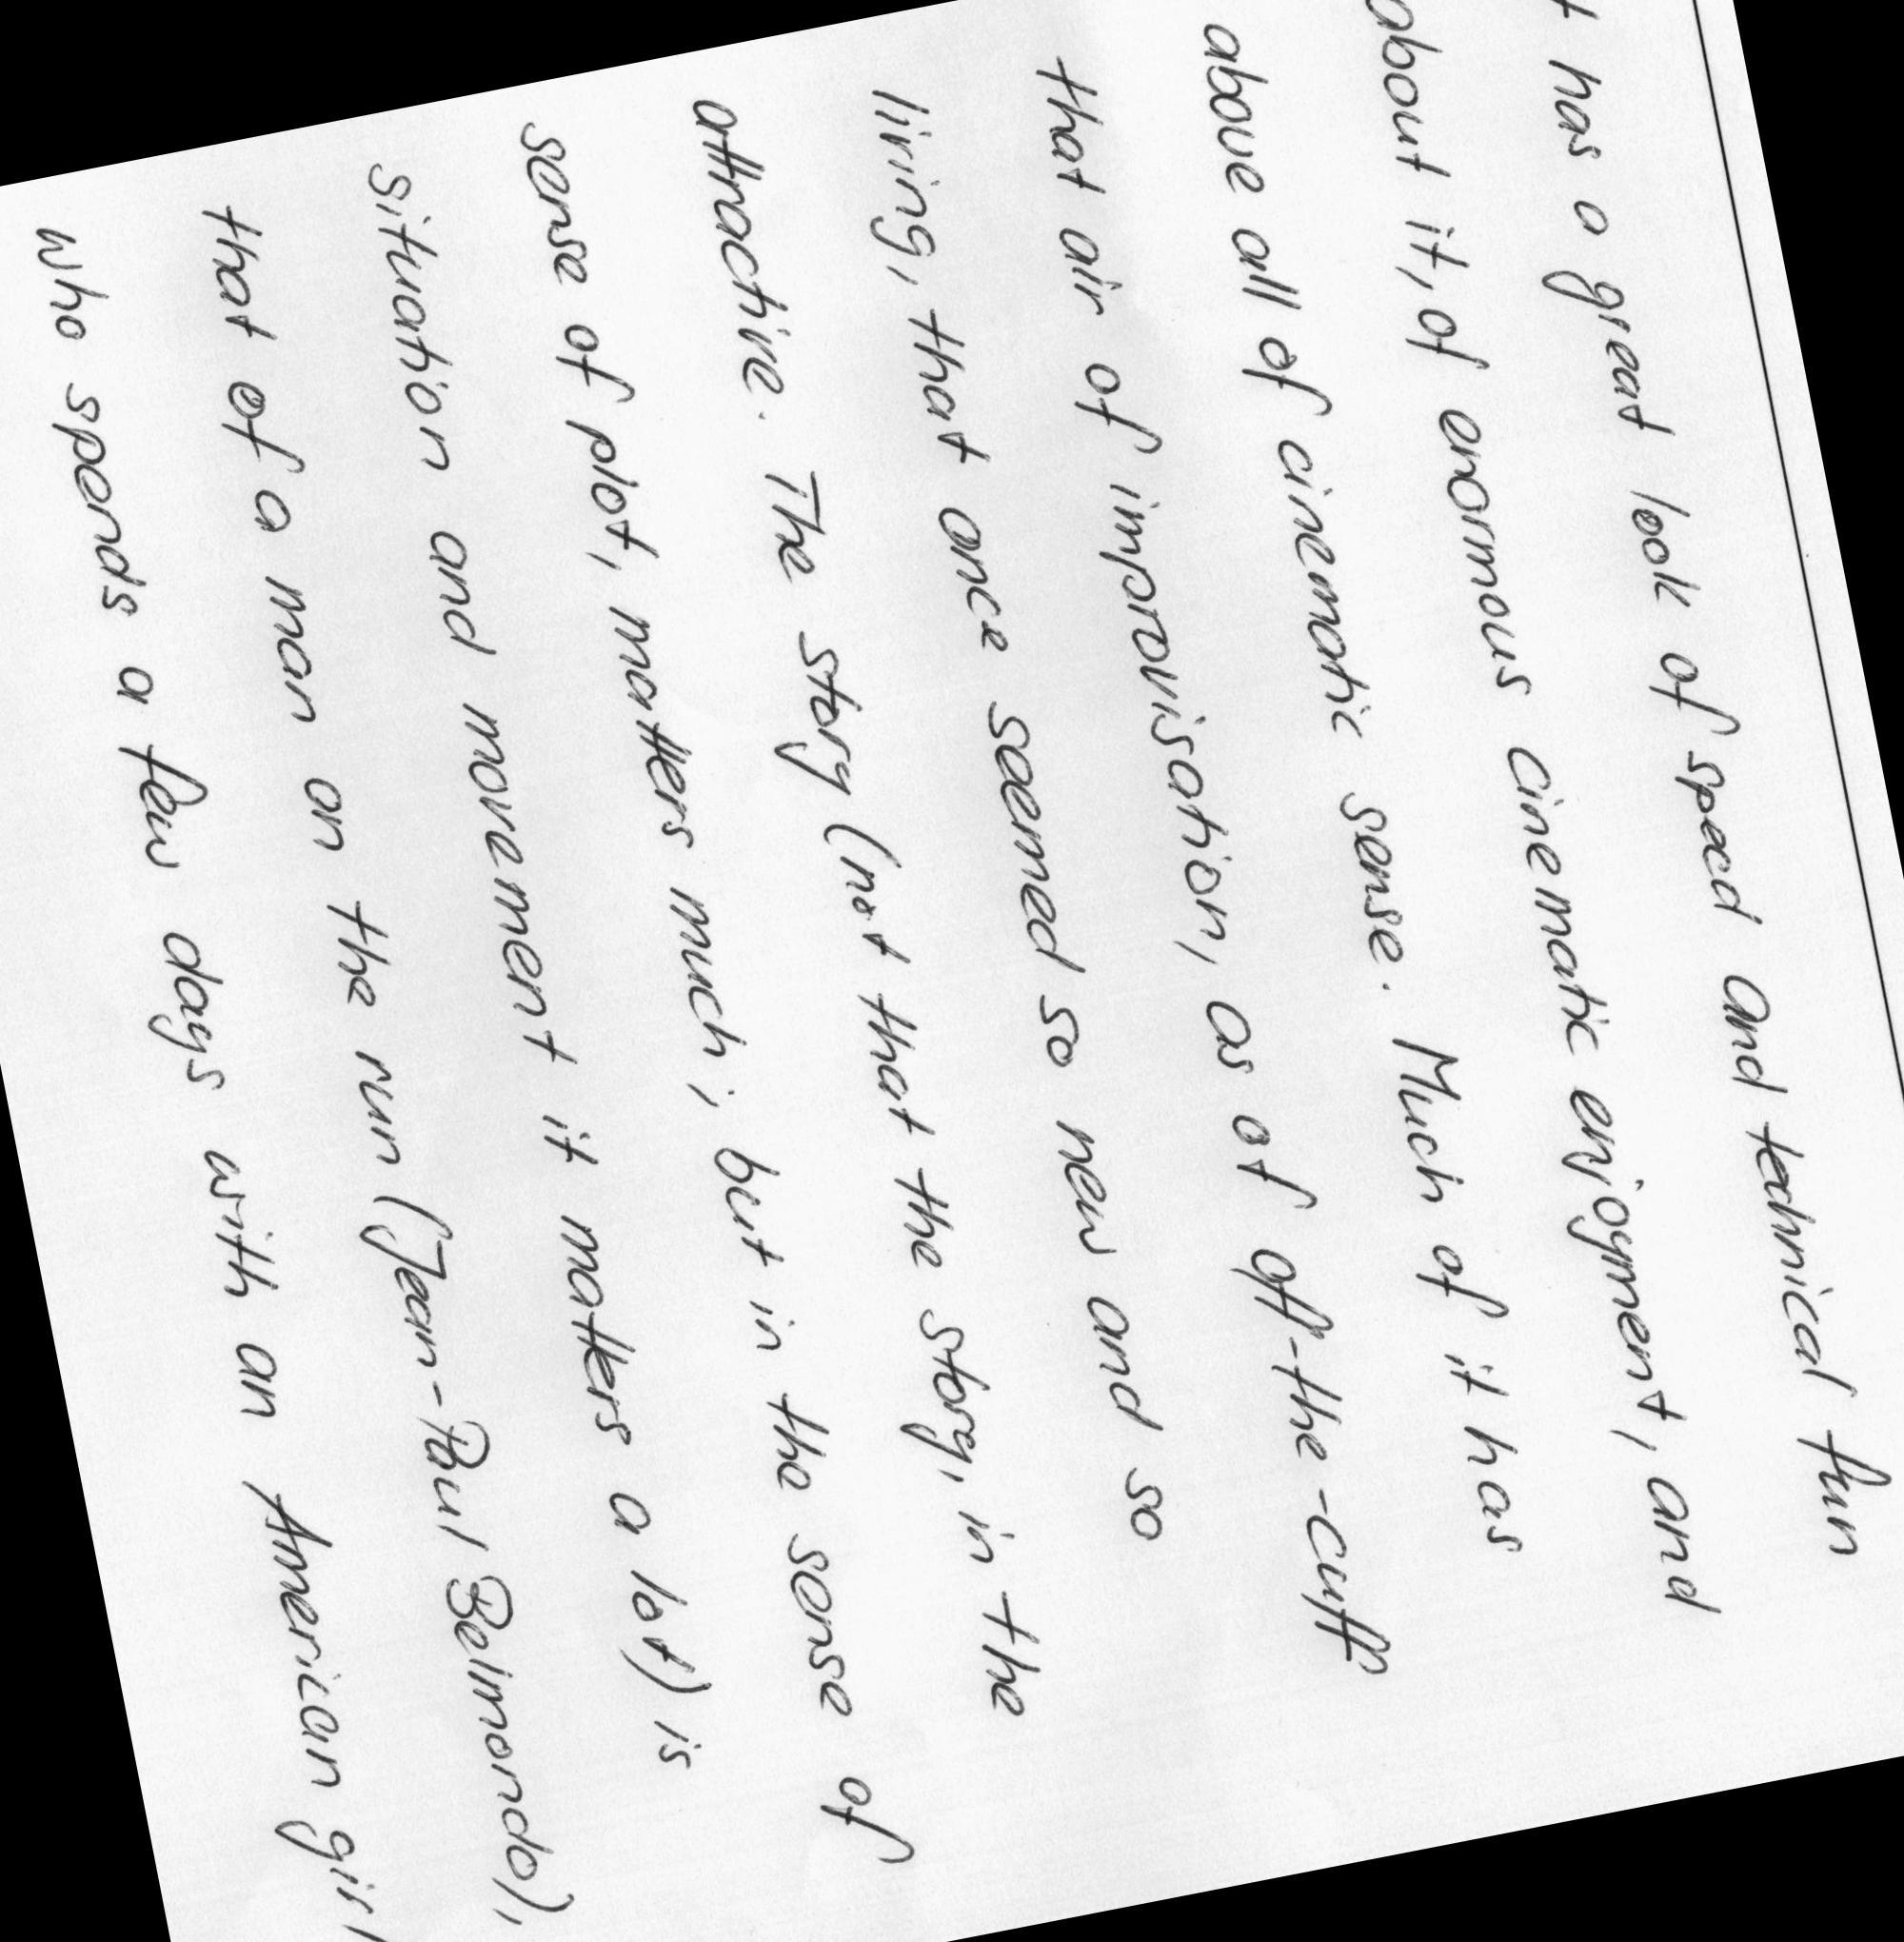 has a great look of speed and technical fun
about it, of enormous cinematic enjoyment, and
above all of cinematic sense. Much of it has
that air of improvisation, as of off-the-cuff
living, that once seemed so new and so
attractive. The story (not that the story, in the
sense of plot, matters much; but in the sense of
situation and movement it matters a lot) is
that of a man on the run (Jean-Paul Belmondo),
who spends a few days with an American girl